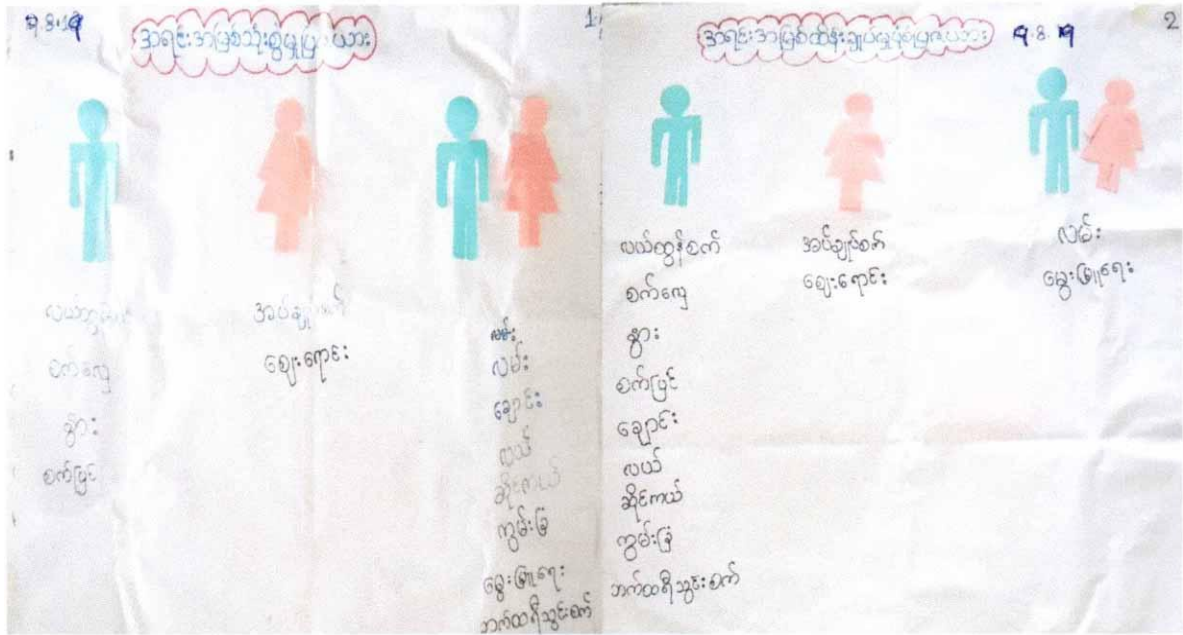 ၅.8.19
အရင်းအမြစ်သုံးစွဲမှုပြဇယား
1
လယ်ထွန်စက်
စက်လှေ
နွား
စက်ပြင်
အပ်ချုပ်စက်
ဈေးရောင်း
လမ်း
လမ်း
ချောင်း
လယ်
ဆိုင်ကယ်
ကွမ်းခြံ
မွေးမြူရေး
ဘက်ထရီသွင်းစက်
အရင်းအမြစ်ထိန်းချုပ်မှုပုံစံပြဇယား
၅.8.19
2
လယ်ထွန်စက်
စက်လှေ
နွား
စက်ပြင်
ချောင်း
လယ်
ဆိုင်ကယ်
ကွမ်းခြံ
ဘက်ထရီသွင်းစက်
အပ်ချုပ်စက်
ဈေးရောင်း
လမ်း
မွေးမြူရေး